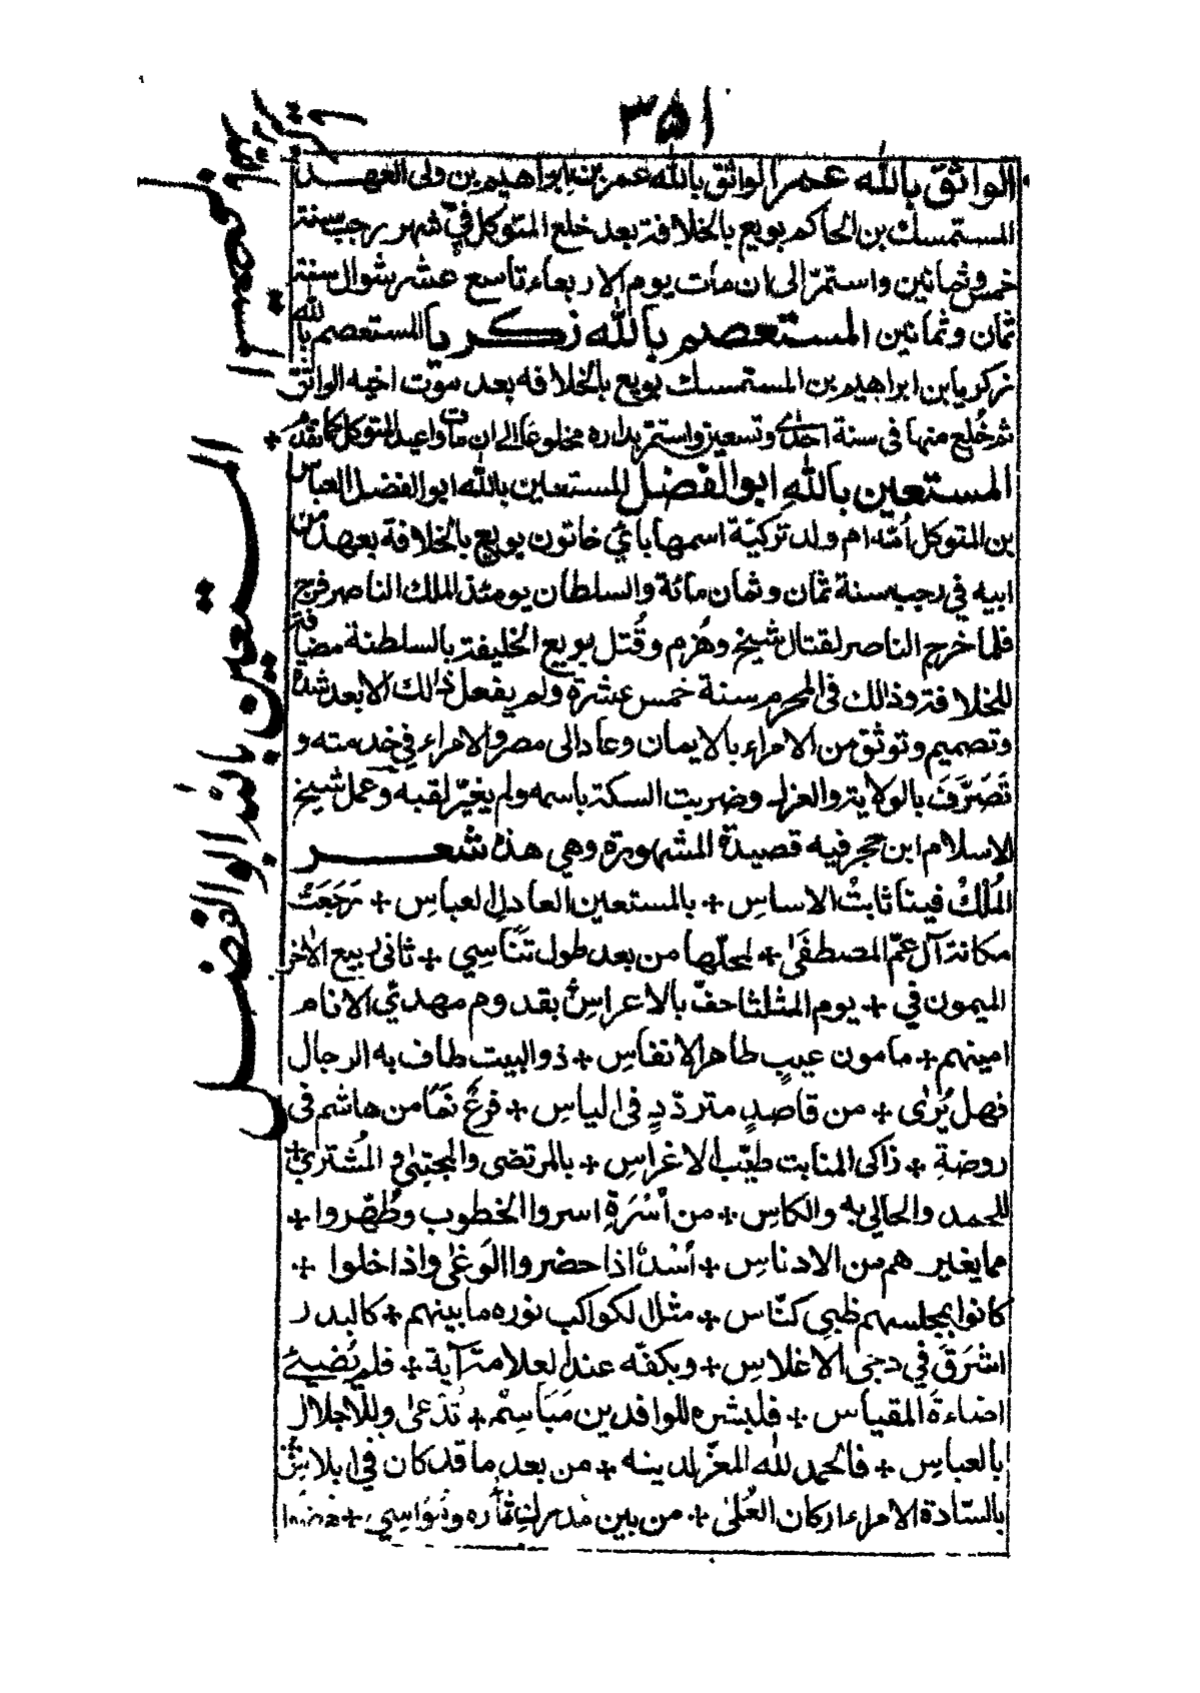 ٣٥١
الواثق بالله عمر الواثق بالله عمر بن ابراهيم بن ولى العهد
المستمسك بن الحاكم بويع بالخلافة بعد خلع المتوكل فى شهر رجب سنة
خمس وثمانين واستمرّ الى ان مات يوم الاربعاء تاسع عشر شوال سنة
ثمان وثمانين المستعصم بالله زكريا المستعصم بالله
زكريا بن ابراهيم بن المستمسك بويع بالخلافه بعد موت اخيه الواثق
ثم خُلع منها فى سنة احدى وتسعين واستمر بداره مخلوعا الى ان مات واعيد المتوكل كما تقدم +
المستعين بالله ابو الفضل المستعين بالله ابو الفضل العباس
بن المتوكل اُمّه ام ولد تركيّة اسمها باي خاتون بويع بالخلافة بعهد من
ابيه في رجب سنة ثمان وثمان مائة والسلطان يومئذ الملك الناصر فرج
فلما خرج الناصر لقتال شيخ وهُزم وقُتل بويع الخليفة بالسلطنة مضافة
للخلافة وذالك فى المحرم سنة خمس عشرة ولم يفعل ذالك الا بعد شدة
وتصميم وتوثق من الامراء بالايمان وعاد الى مصر والامراء في خدمته و
تَصَرَّفَ بالولاية والعزل وضربت السكة باسمه ولم يغيّر لقبه وعمل شيخ
الاسلام ابن حجر فيه قصيدة المشهورة وهي هذه شعر
المُلْكُ فينا ثابتُ الاساسِ + بالمستعين العادل العباسِ + رَجَعَتْ
مكانة آل عمّ المصطفىٰ + لمحلّها من بعد طول تَنَاسِي + ثانى ربيع الآخر
الميمون في + يوم الثلثا حفّ بالاعراسِ بقدوم مهديّ الانام
امينهم + مامون عيبٍ طاهر الانفاسِ + ذو البيت طاف به الرجال
فهل يُرىٰ + من قاصدٍ متردّدٍ فى الياسِ + فرعٌ نَمَا من هاشم فى
روضةِ + ذاكى المنابت طيّب الاغراسِ + بالمرتضى والمجتبىٰ و المُشترىْ +
للحمد والحالي به والكاسِ + من اُسْرَةٍ اسروا الخطوب وطُهّروا +
مما يغيرهم من الادناسِ + اُسْدٌ اذا حضروا الوَغىٰ واذا خلوا +
كانوا بمجلسهم ظبي كنّاس + مثل الكواكب نوره ما بينهم + كالبدر
اشرَقَ في دجى الاغلاسِ + وبكفّه عند العلامة آية + فلم يُضيئ
اضاءةَ المقياس + فلبشره للوافدين مَبَاسِمٌ + تُدْعىٰ وللاجلال
بالعباسِ + فالحمد لله المعزّ لدينه + من بعد ما قد كان في ابلاسِ +
بالسّادة الامراء اركان العُلىٰ + من بين مدرك ثاره ومواسِي +
المستعصم بالله زكريا
المستعين بالله ابو الفضل